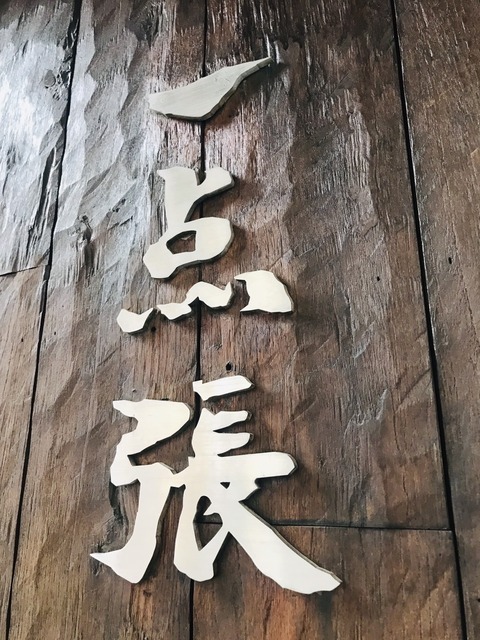 一点張